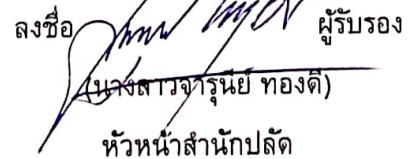 ลงชื่อ ผู้รับรอง
(นางสาวจารุนีย์ ทองดี)
หัวหน้าสำนักปลัด